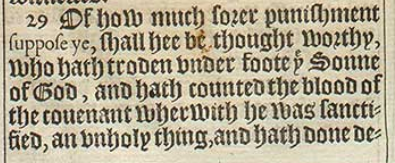 29 Of how much ſorer puniſhment
ſuppoſe ye, ſhall hee be thought worthy,
who hath troden vnder foote yͤ Sonne
of God, and hath counted the blood of
the couenant wherwith he was ſancti⸗
fied, an vnholy thing, and hath done de⸗